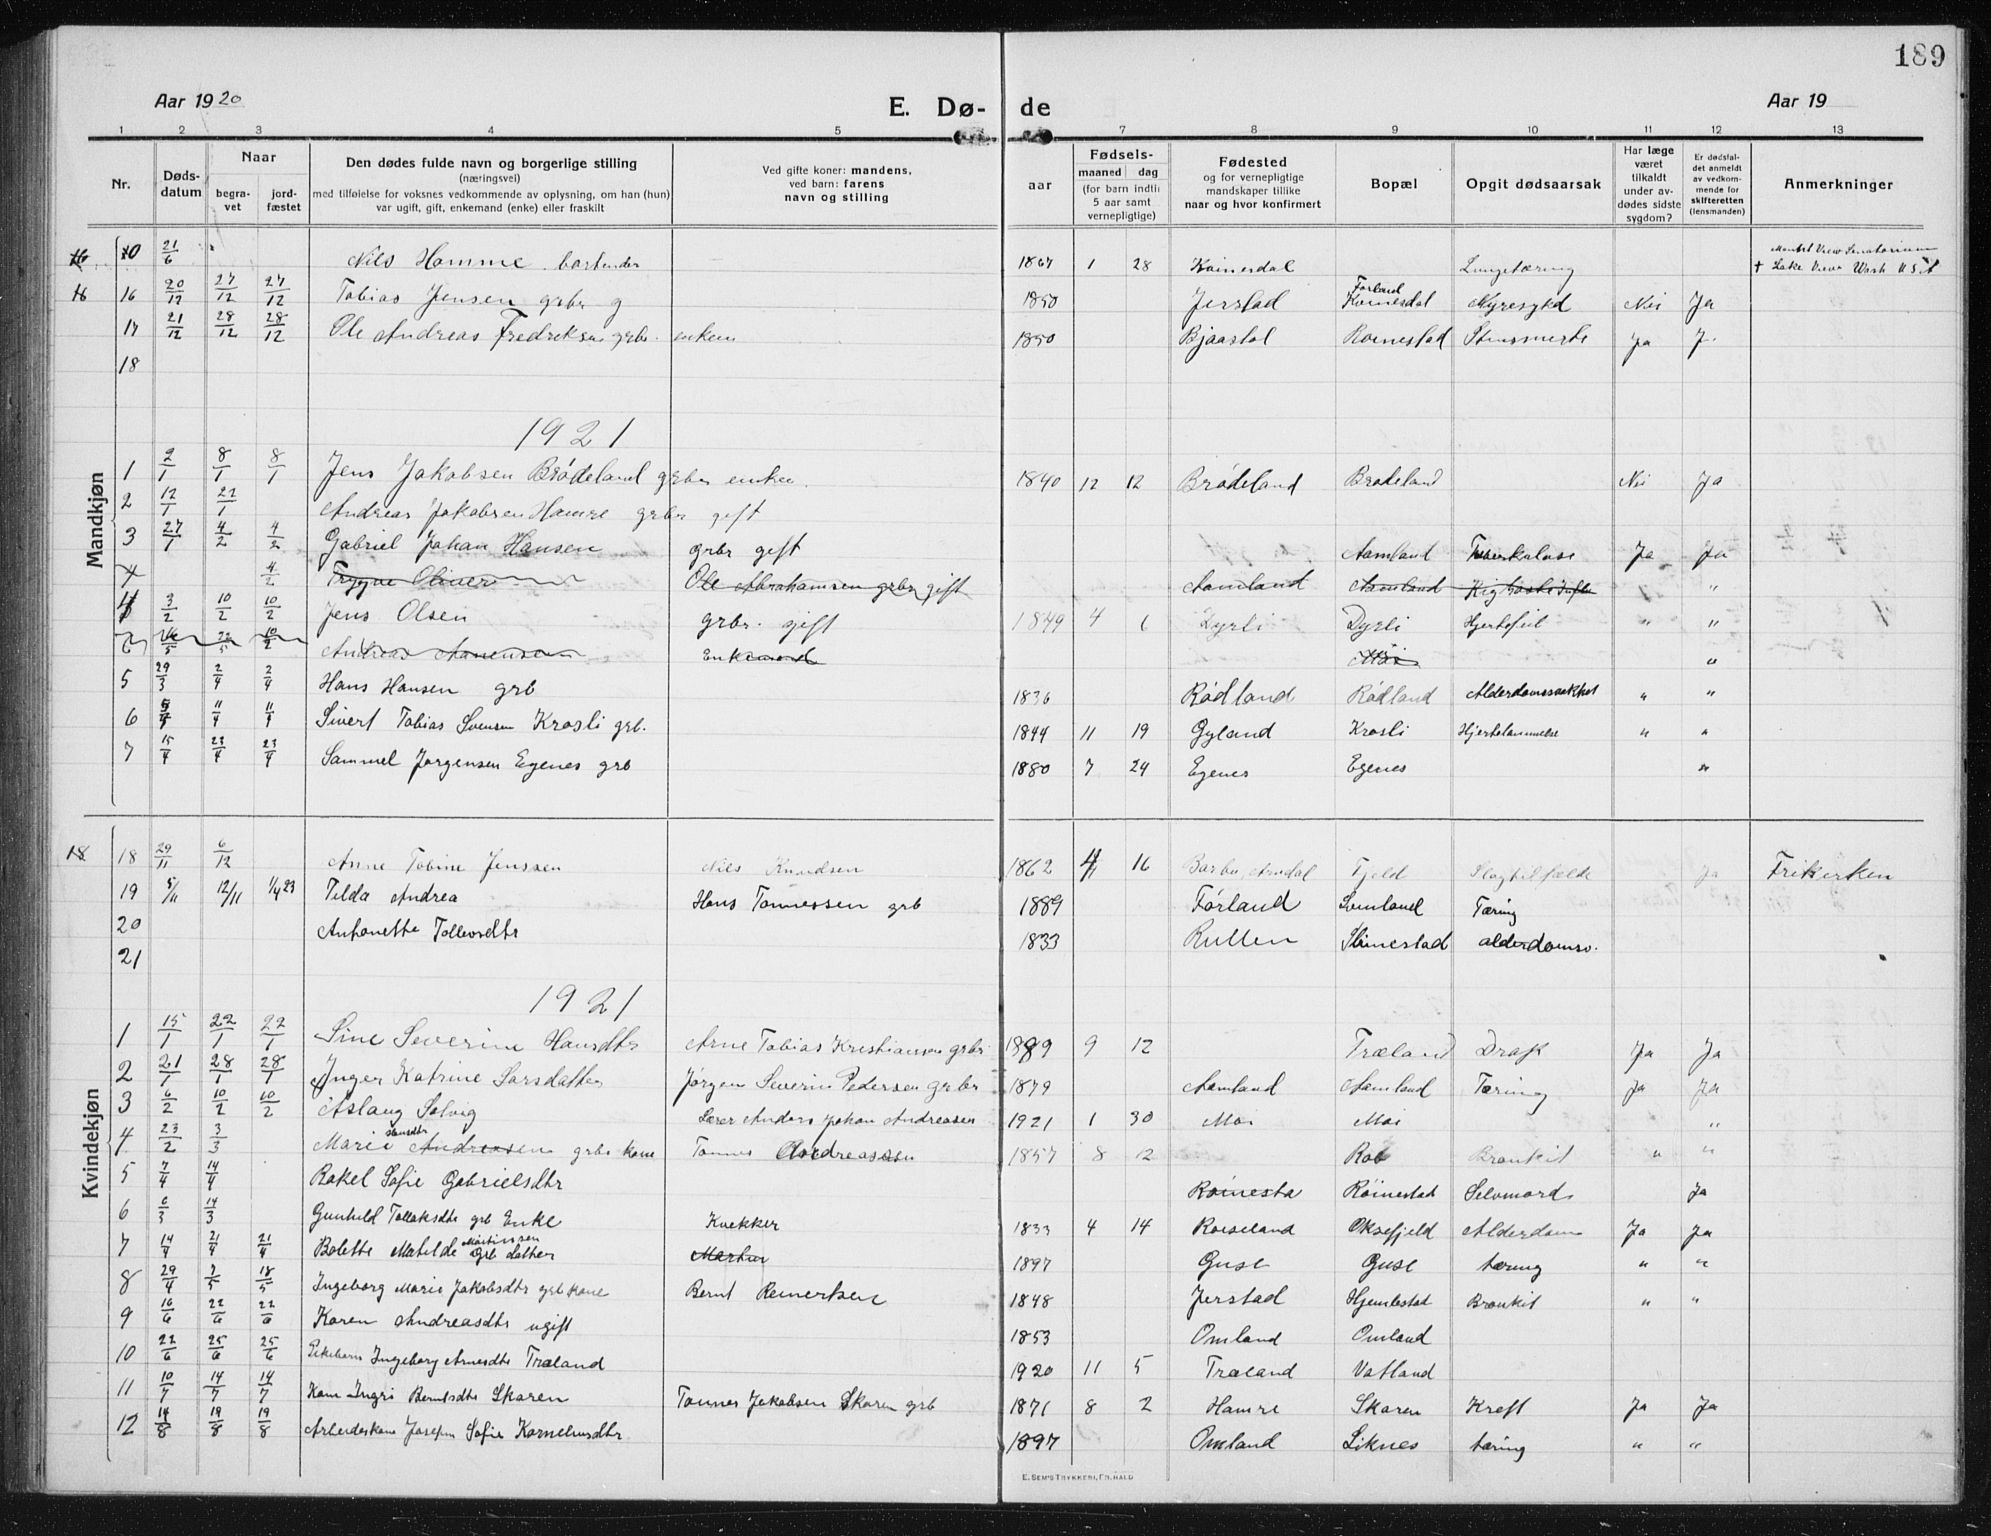 189
Aar 1920 E. Dø- de Aar 19
1 2 3 4 5 7 8 9 10 11 12 13
Nr. Døds-datum Naar begra-vet jord-fæstet Den dødes fulde navn og borgerlige stilling (næringsvei) med tilføielse for voksnes vedkommende av oplysning, om han (hun) var ugift, gift, enkemand (enke) eller fraskilt Ved gifte koner: mandens, ved barn: farens navn og stilling Fødsels- aar maaned dag (for barn indtil 5 aar samt vernepligtige) Fødested og for vernepligtige mandskaper tillike naar og hvor konfirmert Bopæl Opgit dødsaarsak Har læge været tilkaldt under av-dødes sidste sygdom? Er dødsfal-det anmeldt av vedkom-mende for skifteretten (lensmanden) Anmerkninger
Mandkjøn
10 21/6 Nils Hamme bartender 1867 1 28 Kvinesdal Lungetæring
+ Lake View Wash U S A
16 16 20/12 27/12 27/12 Tobias Jensen grbr g 1850 Jerstad Kvinesdal Nyresykd Nei Ja
17 21/12 28/12 28/12 Ole Andreas Fredriksen grbr. enkem 1850 Bjaastal Roinestad Ja J.
18
1921
1 2/1 8/1 8/1 Jens Jakobsen Brödeland grbr enkem. 1840 12 12 Brödeland Brödeland Nei Ja
2 12/1 22/1 Andreas Jakobsen Hamre grbr gift
3 27/1 4/2 4/2 Gabriel Johan Hansen grbr gift Aamland Tuberkulose Ja Ja
4 4/2 Trygve Oliver Ole Abrahamsen grbr gift Aamland Aamland "
4 3/2 10/2 10/2 Jens Olsen grbr. gift 1849 4 6 Dyrli Dyrli Hjertefeil " "
6 16/5 22/5 10/2 Andreas Aanensen Enkemand Moi "
5 29/3 2/4 2/4 Hans Hansen grb 1836 Rødland Rødland Alderdomssvakhet " "
6 5/4 11/4 11/4 Sivert Tobias Svensen Krosli grb. 1844 11 19 Gyland Krosli Hjertelammelse " "
7 15/4 23/4 23/4 Sammel Jørgensen Egenes grb 1880 7 24 Egenes Egenes "
Kvindekjøn
18 18 29/11 6/12 Anne Tobine Jenssen Nils Knudsen 1862 4 16 Barbu, Arndal Fjeld Slagtilfælde Ja Frikirken
19 5/11 12/11 1/4 23 Tilda Andrea Hans Tønnessen grb 1889 Førland Svinland Tæring
20 Antonette Tollevsdtr 1833 Rullen Stinestad alderdomsv.
21
1921
1 15/1 22/1 22/1 Sine Severine Hansdtr Arne Tobias Kristiansen grbr. 1899 9 12 Træland Drap Ja Ja
2 21/1 28/1 28/1 Inger Katrine Larsdatter Jørgen Severin Pedersen grbr 1879 Aamland Aamland Tæring Ja Ja
3 6/2 10/2 10/2 Aslaug Solvig Lærer Anders Johan Andreasen 1921 1 30 Moi Moi "
4 23/2 3/3 Marie Hansdtr Andreasen grbr kone Tønnes Andreassen 1857 8 12 Bronkit " "
5 7/4 14/4 Rakel Sofie Gabrielsdtr Roinesta Röinestad Selvmord Ja
6 6/3 14/3 Gunhild Tollaksdtr grb Enke Kvekker 1833 4 14 Roiseland Oksefjeld Alderdom Ja Ja
7 14/4 21/4 21/4 Bolette Matilde Martinssen Grb datter Martin 1897 Guse Guse tæring " "
8 29/4 7/5 18/5 Ingeborg Marie Jakobsdtr grb kone Bernt Reinertsen 1848 Jerstad Hjemlestad Bronkit " "
9 16/6 22/6 22/6 Karen Andreasdtr ugift 1853 Omland Omland
10 22/6 25/6 25/6 Pikebarn Ingeborg Arnesdtr Træland 1920 11 5 Træland Vatland
11 10/7 14/7 14/7 Kone Ingri Berntsdtr Skaren Tønnes Jakobsen Skaren grb 1871 8 2 Hamre Skaren Kreft Ja Ja
12 14/8 19/8 19/8 Arbeidskone Josefine Sofie Korneliusdtr 1897 Omland Liknes tæring " "
E. SEM'S TRYKKERI, FR. HALD